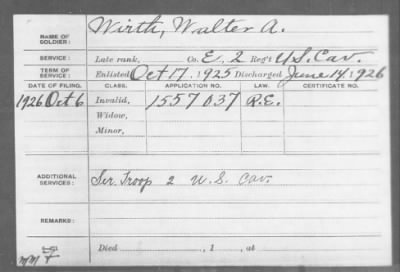 NAME OF SOLDIER: Wirth, Walter A.
SERVICE: Late rank, Co. E, 2 Reg't U.S. Cav.
TERM OF SERVICE: Enlisted Oct 17, 1925 Discharged June 14, 1926
DATE OF FILING. CLASS. APPLICATION NO. LAW. CERTIFICATE NO.
1926 Oct 6 Invalid, 1557 037 R.E.
Widow,
Minor,
ADDITIONAL SERVICES: Ser. Troop 2 U.S. Cav.
REMARKS:
Died , 1 , at